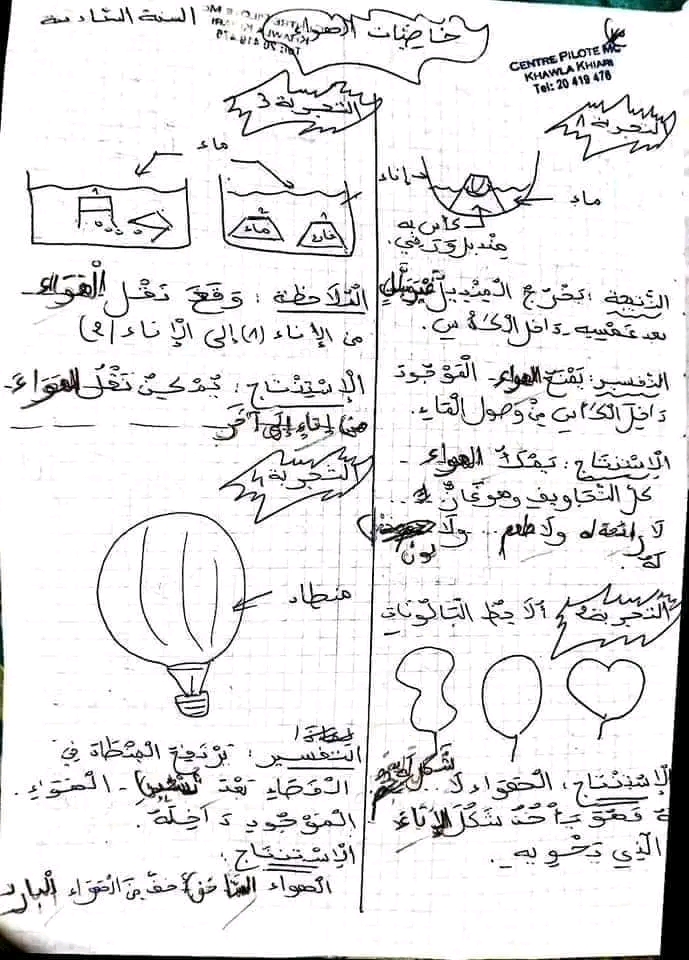 السنة السادسة
خاصيات الهواء
CENTRE PILOTE MC
KHAWLA KHIARI
Tel: 20 419 476
التجربة 1
إناء
ماء
كأس به
منديل ورقي.
النتيجة: يخرج المنديل
بعد غمسه داخل الكأس.
التفسير: يمنع الهواء الموجود
داخل الكأس من وصول الماء.
الإستنتاج: يملأ الهواء
كل التجاويف وهو غاز
لا رائحة له ولا طعم ولا
لون
له.
التجربة 2 ألاحظ البالونات
الإستنتاج: الهواء لا شكل له
فهو يأخذ شكل الإناء
الذي يحويه.
التجربة 3
ماء
ماء
فارغ
الملاحظة: وقع نقل الهواء
من الإناء (1) إلى الإناء (2)
الإستنتاج: يمكن نقل الهواء
من إناء إلى آخر
التجربة 4
منطاد
التفسير: يرتفع المنطاد في
الفضاء بعد تسخين الهواء
الموجود داخله.
الإستنتاج:
الهواء الساخن أخف من الهواء البارد